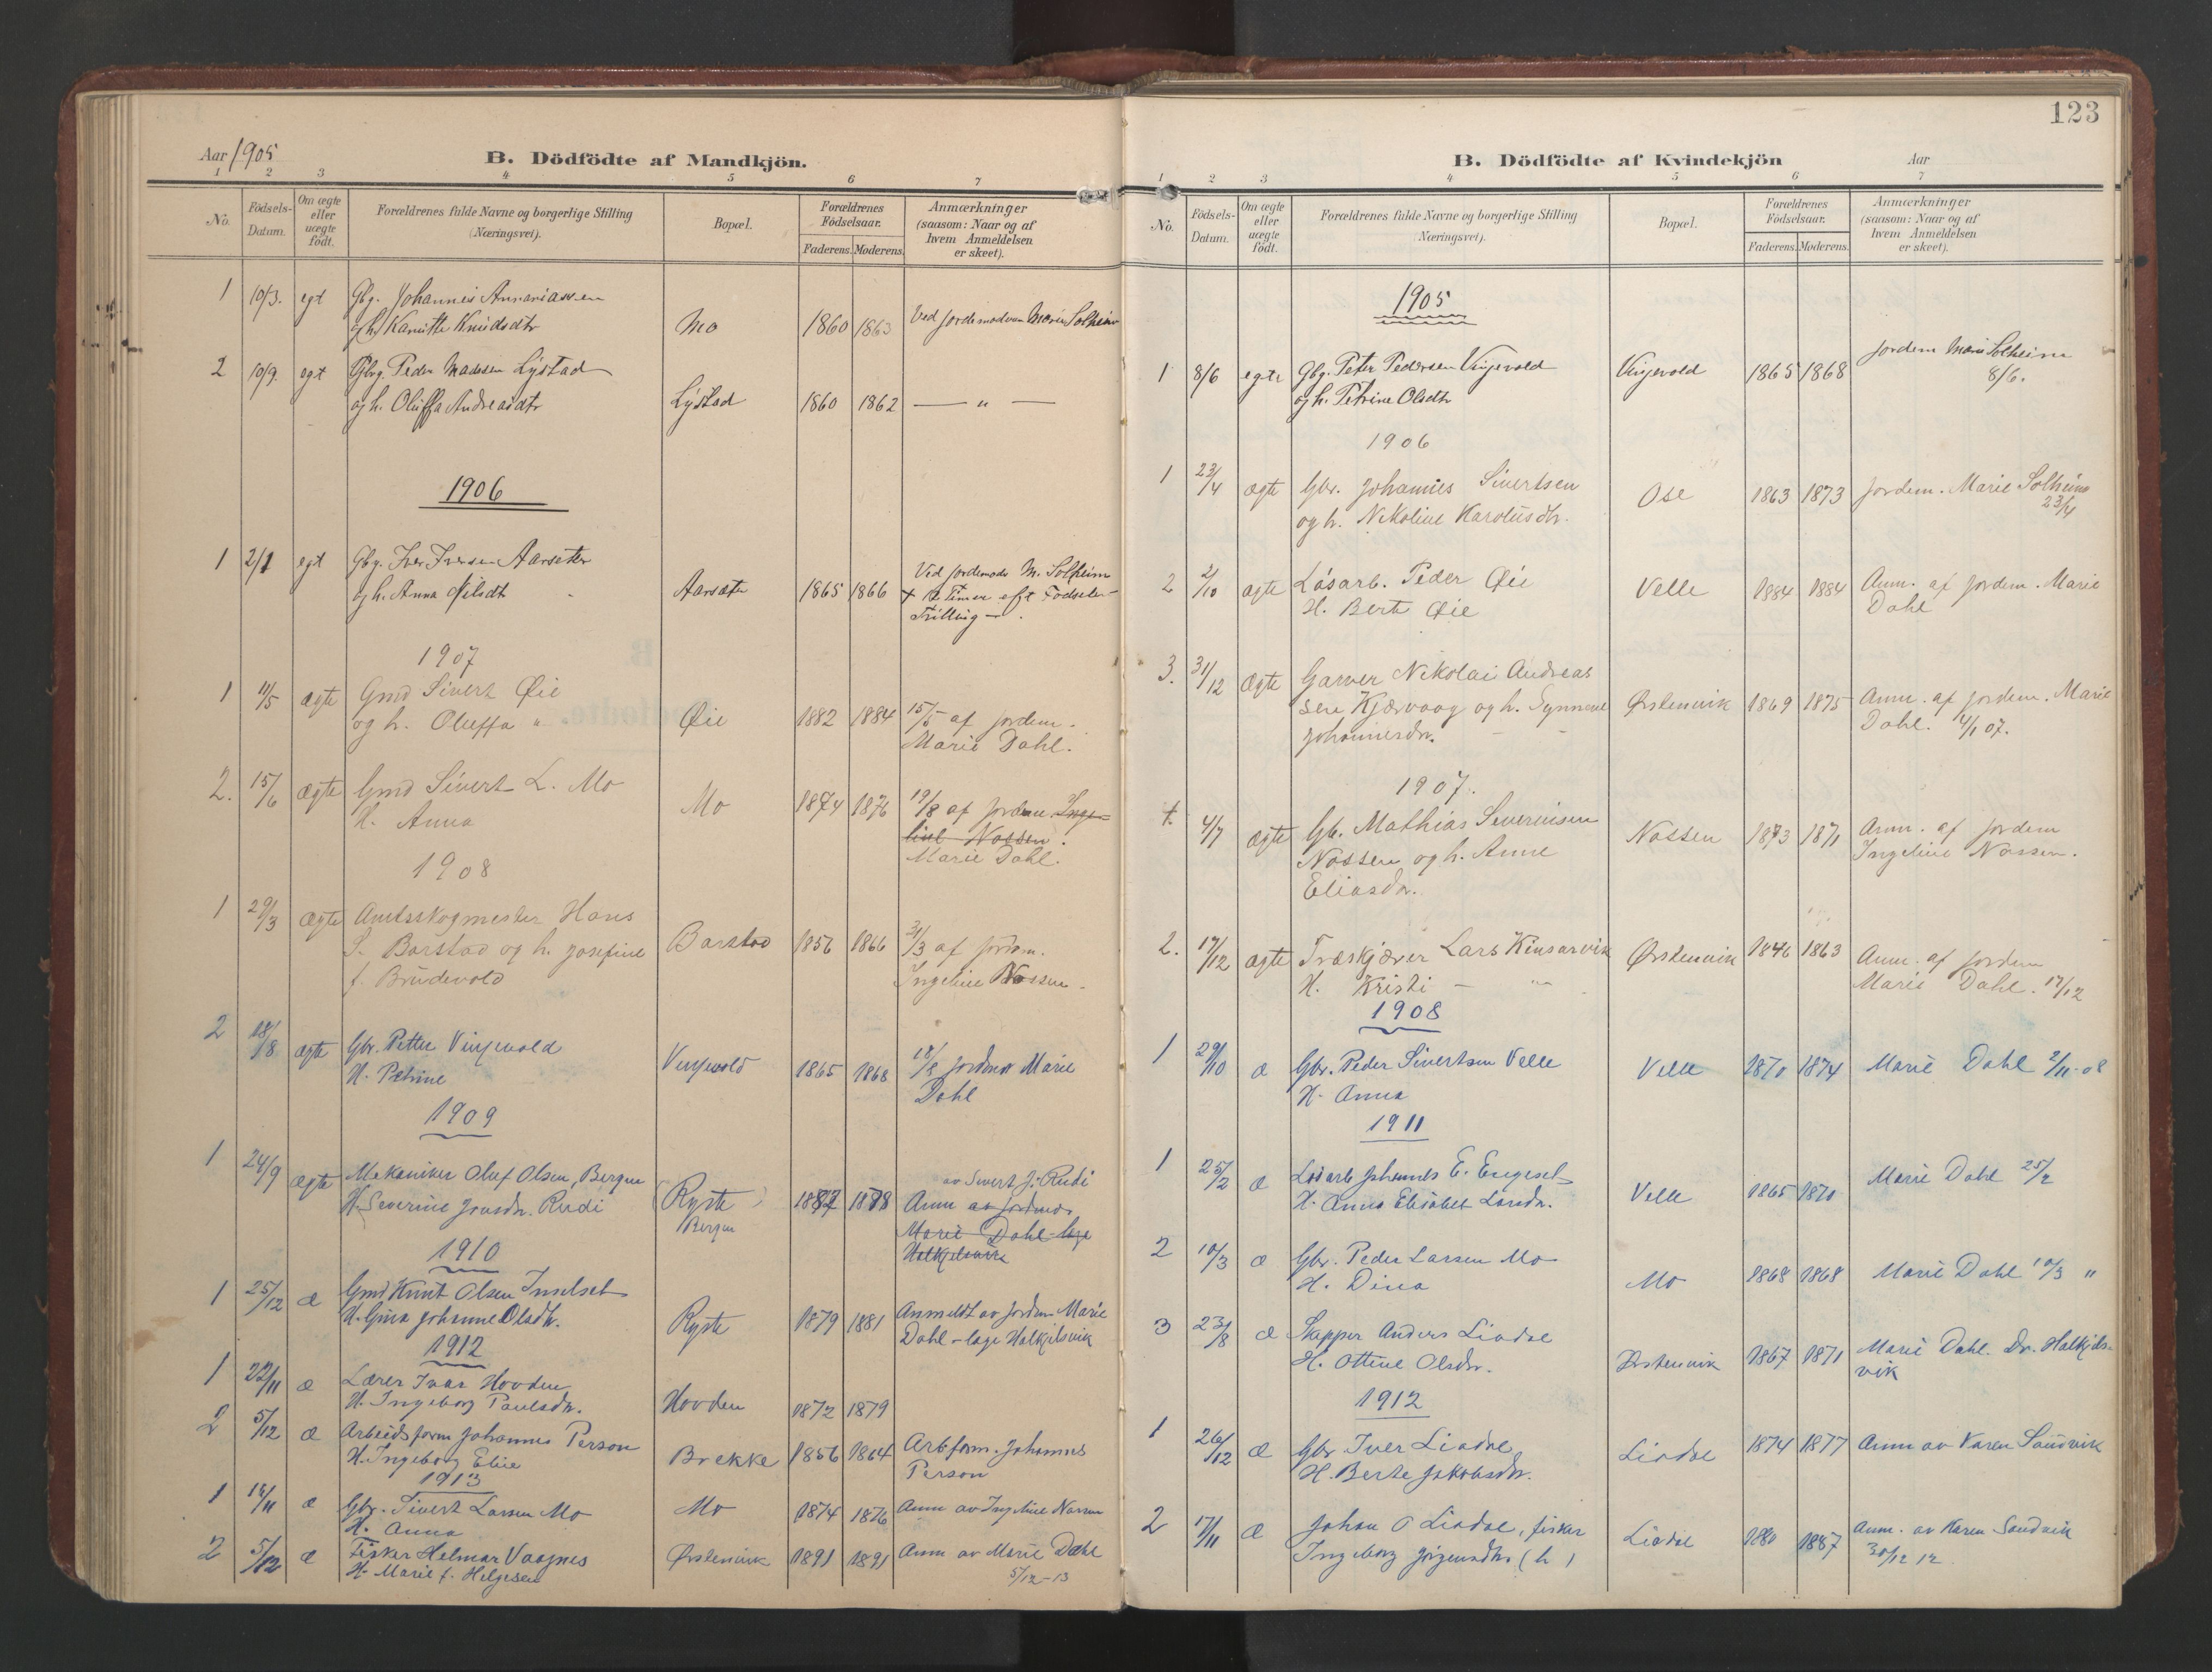 Aar 1905
B. Dödfödte af Mandkjön.
1 2 3 4 5 6 7
No.
Födsels-
Datum.
Om ægte
eller
uægte
födt.
Forældrenes fulde Navne og borgerlige Stilling
(Næringsvei).
Bopæl.
Forældrenes
Födselsaar.
Faderens. Moderens.
Anmærkninger
(saasom: Naar og af
hvem Anmeldelsen
er skeet).
1 10/3. egt Gbg. Johannes Annaniassen
og h. Kanutte Knudsdtr Mo 1860 1863 Ved jordemoderen Marie Solheim
2 10/9. egt Gbrg. Peder Madssen Lystad
og h. Oluffa Andreasdtr Lystad 1860 1862 — " —
1906
1 2/1 egt Gbg. Iver Iversen Aarsæter
og h. Anna Nilsdt Aarsæter 1865 1866 Ved jordemoder M. Solheim
Timer eft Fødselen -
Trilling -
1907
1 11/5 ægte Gmd Sivert Øie
og h. Oluffa " Øie 1882 1884 15/5 af jordem.
Marie Dahl.
2. 15/6 ægte Gmd Sivert L. Mo
H. Anna Mo 1874 1876 19/8 af jordem Inge-
line Nossen.
Marie Dahl.
1908
1 29/3 ægte Amtsskogmester Hans
S. Barstad og h. Josefine
f. Brudevold Barstad 1856 1866 31/3 af jordem.
Ingeline Nossen.
2 18/8 ægte Gbr. Petter Vinjevold
H. Petrine Vinjevold 1865 1868 18/8 jordmor Marie
Dahl
1909
1 24/9 ægte Mekaniker Oluf Olsen, Bergen
H. Severine Jonsdr. Rudi (Ryste)
Bergen 1887 1878 av Sivert J. Rudi
Anm av jordmor
Marie Dahl - læge
Halkjelsvik
1910
1 25/12 æ Gmd Knut Olsen Inselset
H. Gina Johanne Olsdtr. Ryste 1879 1881 Anmeldt av jordm Marie
Dahl - læge Halkjelsvik
1912
1 22/11 æ Lærer Ivar Hovden
H. Ingeborg Paulsdr. Hovden 1872 1879
2 5/12 æ Arbeidsform Johannes Person
H. Ingeborg Elise Brekke 1856 1864 Arbform. Johannes
Person
1913
1 18/11 æ Gbr. Sivert Larsen Mo
H. Anna Mo 1874 1876 Anm av Ingeline Nossen
2 5/12 æ Fisker Helmar Vaagnes
H. Marie f. Helgesen Ørstenvik 1891 1891 Anm av Marie Dahl
5/12-13
123
B. Dödfödte af Kvindekjön
Aar
1 2 3 4 5 6 7
No.
Födsels-
Datum.
Om ægte
eller
uægte
födt.
Forældrenes fulde Navne og borgerlige Stilling
Næringsvei).
Bopæl.
Forældrenes
Födselsaar.
Faderens. Moderens.
Anmærkninger
(saasom: Naar og af
hvem Anmeldelsen
er skeet).
1905
1 8/6 egte Gbg. Peter Pedersen Vinjevold
og h. Petrine Olsdtr Vinjevold 1865 1868 Jordem Marie Solheim
8/6.
1906
1 23/4 ægte Gbr. Johannes Sivertsen
og h. Nikoline Karolusdtr. Ose 1863 1873 Jordem. Marie Solheim
23/4
2 2/10 ægte Løsarb. Peder Øie
H. Berte Øie Velle 1884 1884 Anm. af jordem. Marie
Dahl
3. 31/12 ægte Garver Nikolai Andreas
sen Kjærvaag og h. Synneve
Johannesdr. Ørstenvik 1869 1875 Anm. af jordem. Marie
Dahl. 4/1 07.
1907.
1. 4/7 ægte Gb. Mathias Severinsen
Nossen og h. Anne
Eliasdr. Nossen 1873 1871 Anm. af jordem
Ingeline Nossen.
2. 17/12 ægte Træskjærer Lars Kinsarvik
H. Kristi — " Ørstenvik 1846 1863 Anm. af jordem
Marie Dahl. 17/12
1908
1 29/10 æ Gbr. Peder Sivertsen Velle
H. Anna Velle 1870 1874 Marie Dahl 2/11-08
1911
1 25/2 æ Løsarb Johannes E. Engeset
H. Anna Elisabet Larsdr. Velle 1865 1870 Marie Dahl 25/2
2 10/3 æ Gbr. Peder Larsen Mo
H. Dina Mo 1868 1868 Marie Dahl 10/3 "
3 23/8 æ Skipper Anders Liadal
H. Ottine Olsdr. Ørstenvik 1867 1871 Marie Dahl. Dr. Halkjels-
vik
1912
1 26/12 æ Gbr Iver Liadal
H. Berte Jakobsdr. Liadal 1874 1877 Anm av Karen Sandvik
2 17/11 æ Johan O Liadal, fisker
Ingeborg Jørgensdtr (h) Liadal 1880 1887 Anm. av Karen Sandvik
30/12 12.